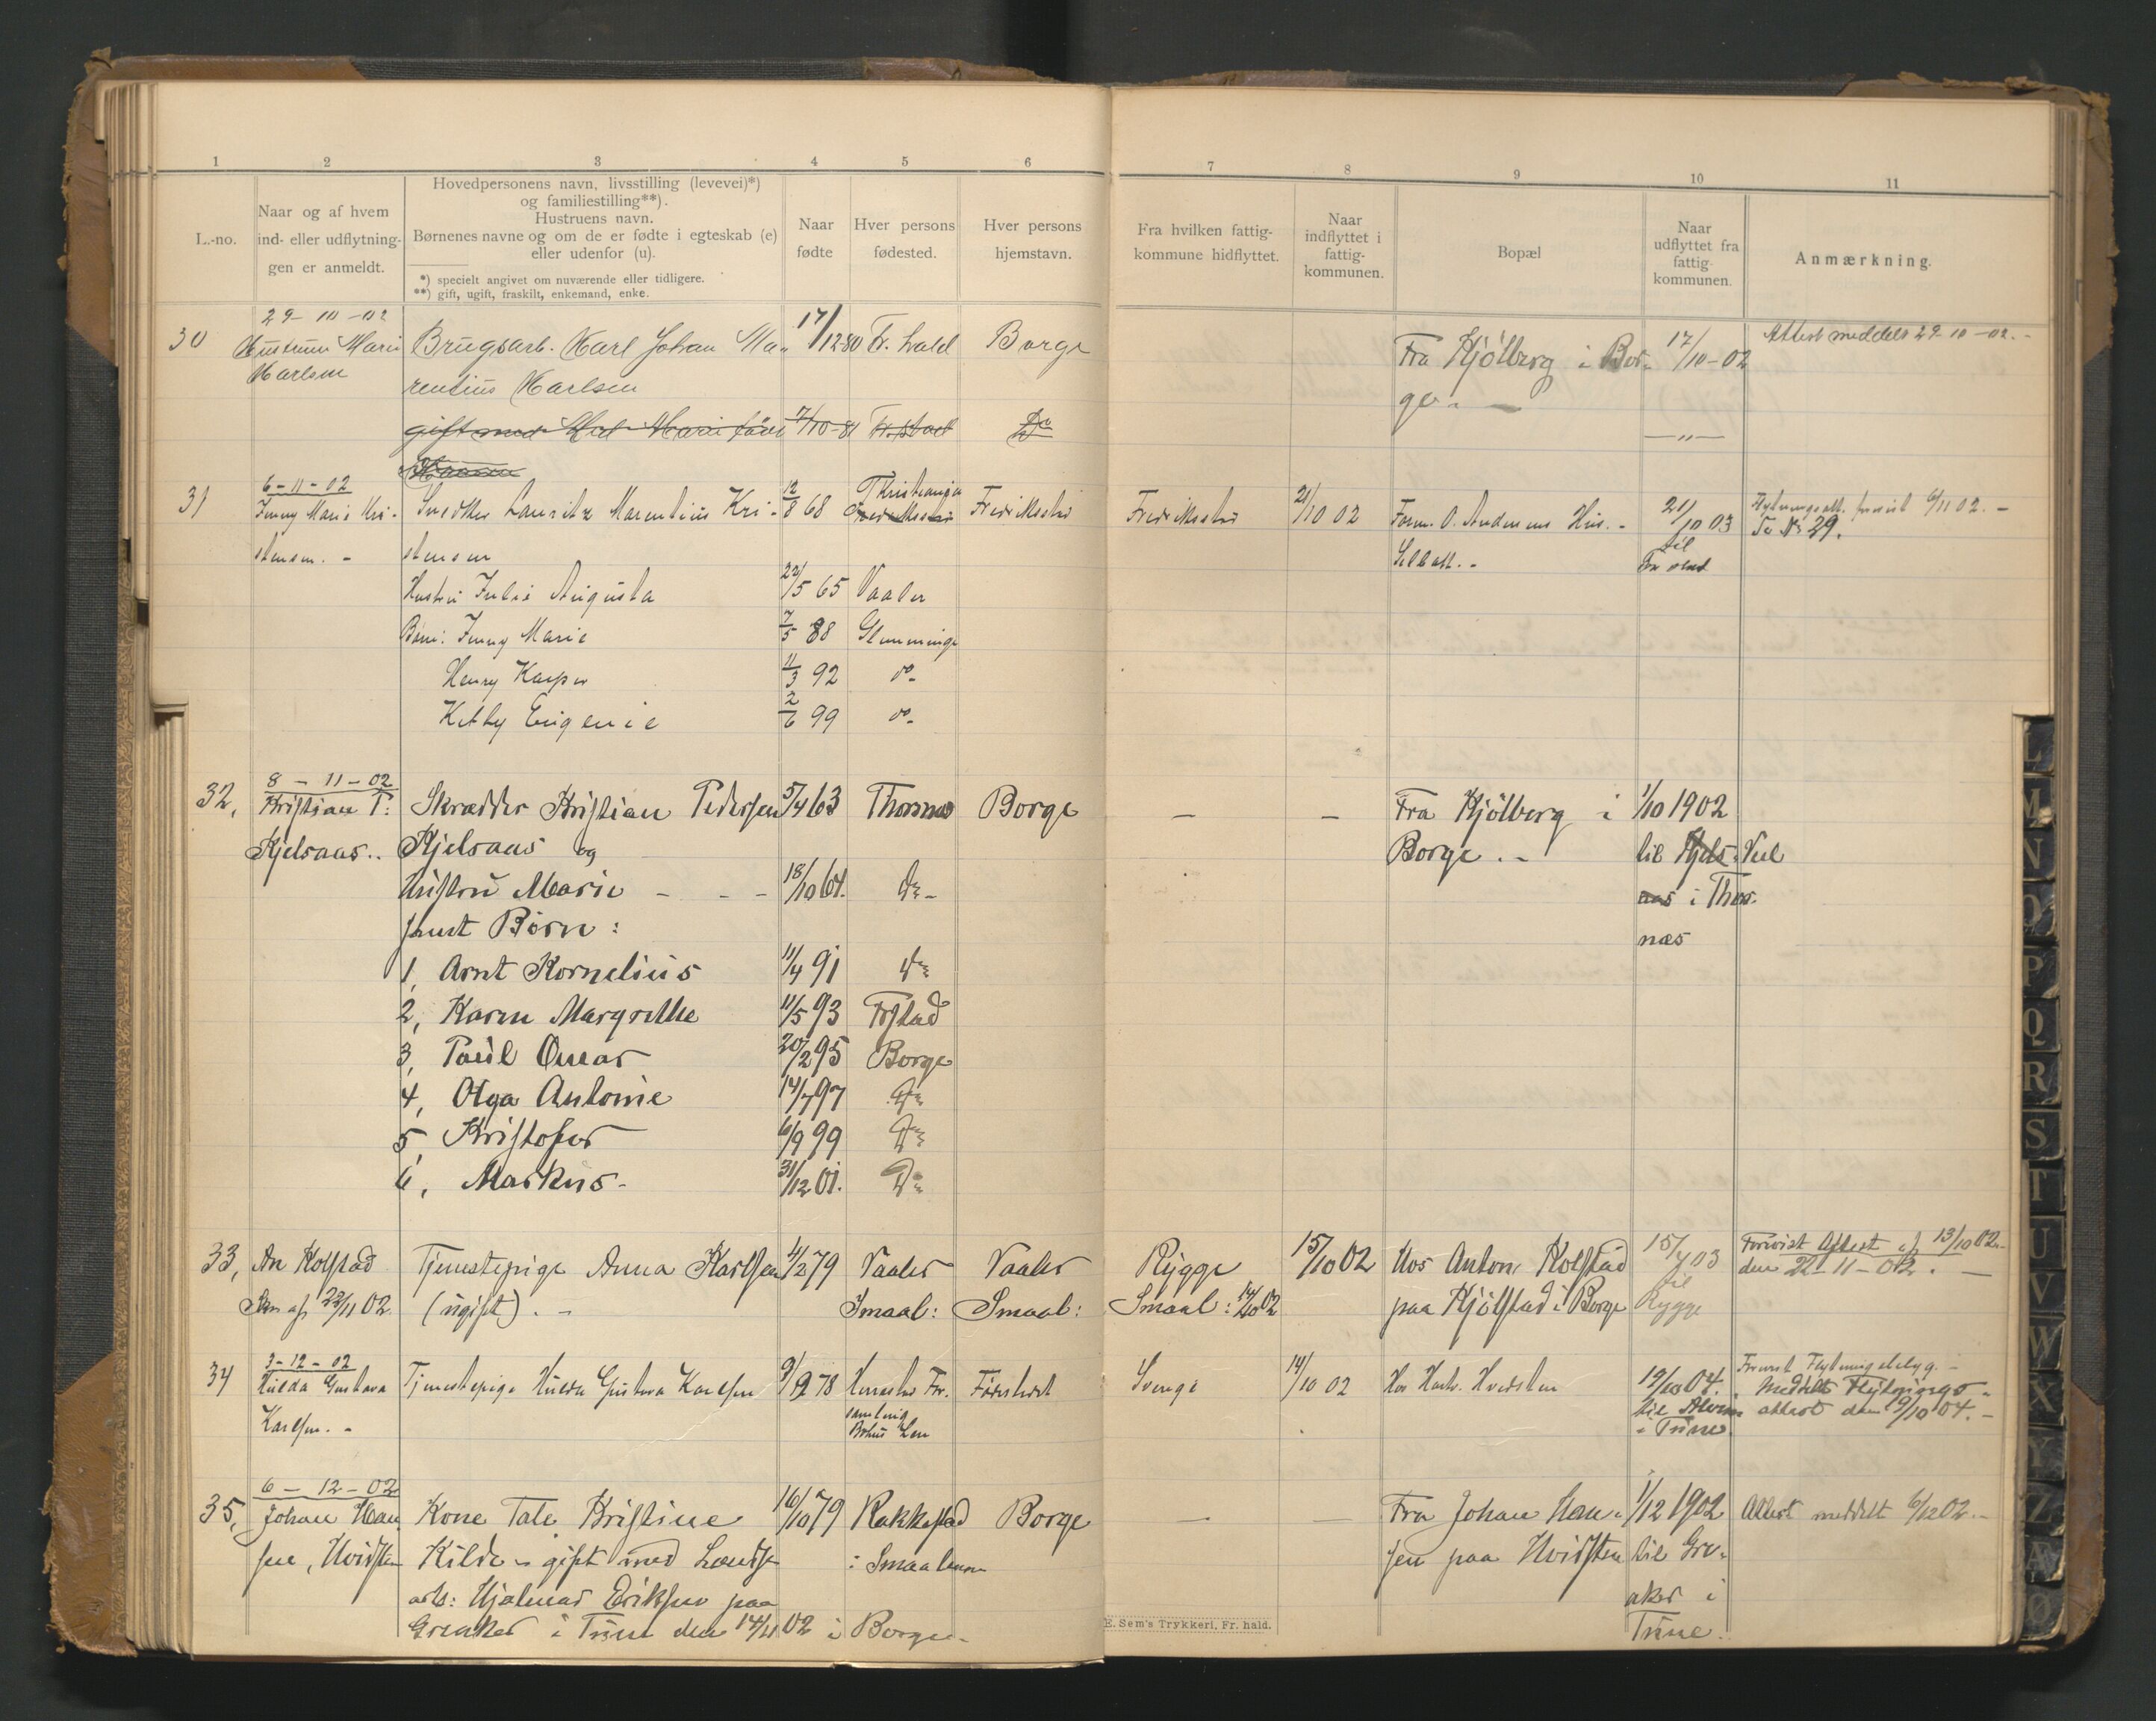 1 2 3 4 5 6 7 8 9 10 11
L.-no.
Naar og af hvem
ind- eller udflytnin-
gen er anmeldt.
Hovedpersonens navn, livsstilling (levevei)*)
og familiestilling**).
Hustruens navn.
Børnenes navne og om de er fødte i egteskab (e)
eller udenfor (u).
*) specielt angivet om nuværende eller tidligere.
**) gift, ugift, fraskilt, enkemand, enke.
Naar
fødte
Hver persons
fødested.
Hver persons
hjemstavn.
Fra hvilken fattig-
kommune hidflyttet.
Naar
indflyttet i
fattig-
kommunen.
Bopæl
Naar
udflyttet fra
fattig-
kommunen.
Anmærkning.
29-10-02
30 Hustrun Marie Brugsarb. Karl Johan Ma- 17/12 80 Fr. hald Borge Fra Kjölberg i Bor- 17/10-02 Attest meddelt 29-10-02.-
Karlsen rentius Karlsen ge.-
gift med Marie født 7/10-81 Do -"-
Hansen
6-11-02
31 Jenny Marie Kri- Snedker Lauritz Marentius Kri- 12/8 68 Kristiania Fredriksstad Fredriksstad 21/10 02 Form. O. Andersens Hus.- 21/10 03 Flytningsatt. forevist 6/11 02.-
Fredriksstad
stensen.- stensen til Se No 29.
Hustru Julie Augusta 22/5 65 Vaaler
Børn: Jenny Marie 7/5 88 Glemminge
Henry Kasper 11/3 92 do-
Kitty Eugenie 2/6 99 do-
8-11-02
32, Kristian P: Skrædder Kristian Pedersen 5/4 63 Thorsnæs Borge - - Fra Kjölberg i 1/10 1902
Kjelsaas.. Kjelsaas og Borge.- til Kjels- Vel
Hustru Marie - - - 18/10 64. do- aas i Thors-
samt Børn: næs
1, Arnt Kornelius 11/4 91 do
2, Karen Margrethe 11/5 93 Frstad
3, Paul Omar 20/2 95 Borge
4, Olga Antonie 14/7 97 do
5, Kristofer 6/9 99 do
6, Markus- 31/12 01. do
33, An Kolstad Tjenestepige Anna Karlsen 4/2 79 Vaaler Vaaler Rygge 15/10 02 Hos Anton Kolstad 15/4 03 Forevist Attest af 13/10 02.-
22/11 02 (ugift).- Smaal: Smaal: Smaal: 14/10 02 paa Kjölstad i Borge til den 22-11-02.-
Rygge
3-12-02
34 Hulda Gustava Tjenestepige Hulda Gustava Karlsen 9/9 78 Sverige 14/10 02 Hos Hvidsten 19/10 04. Forevist Flytningsbetyg.-
Karlsen.- samling til Alvim Meddelt Flytnings-
Bohus Len i Tune attest den 19/10 04.-
6-12-02
35, Johan Han- Kone Tale Kristine 16/10 79 Rakkestad Borge - - Fra Johan Han- 1/12 1902 Attest meddelt 6/12 02.-
sen, Hvidsten Kilde - gift med Lands- i Smaalenene sen paa Hvidsten til Gre-
arb: Hjalmar Eriksen paa aker i
Greaker i Tune den 14/11 02 i Borge- Tune.
E. Sem's Trykkeri, Fr. hald.
L
M
N
O
P
Q
R
S
T
U
V
W
X
Y
Z
Æ
Ø